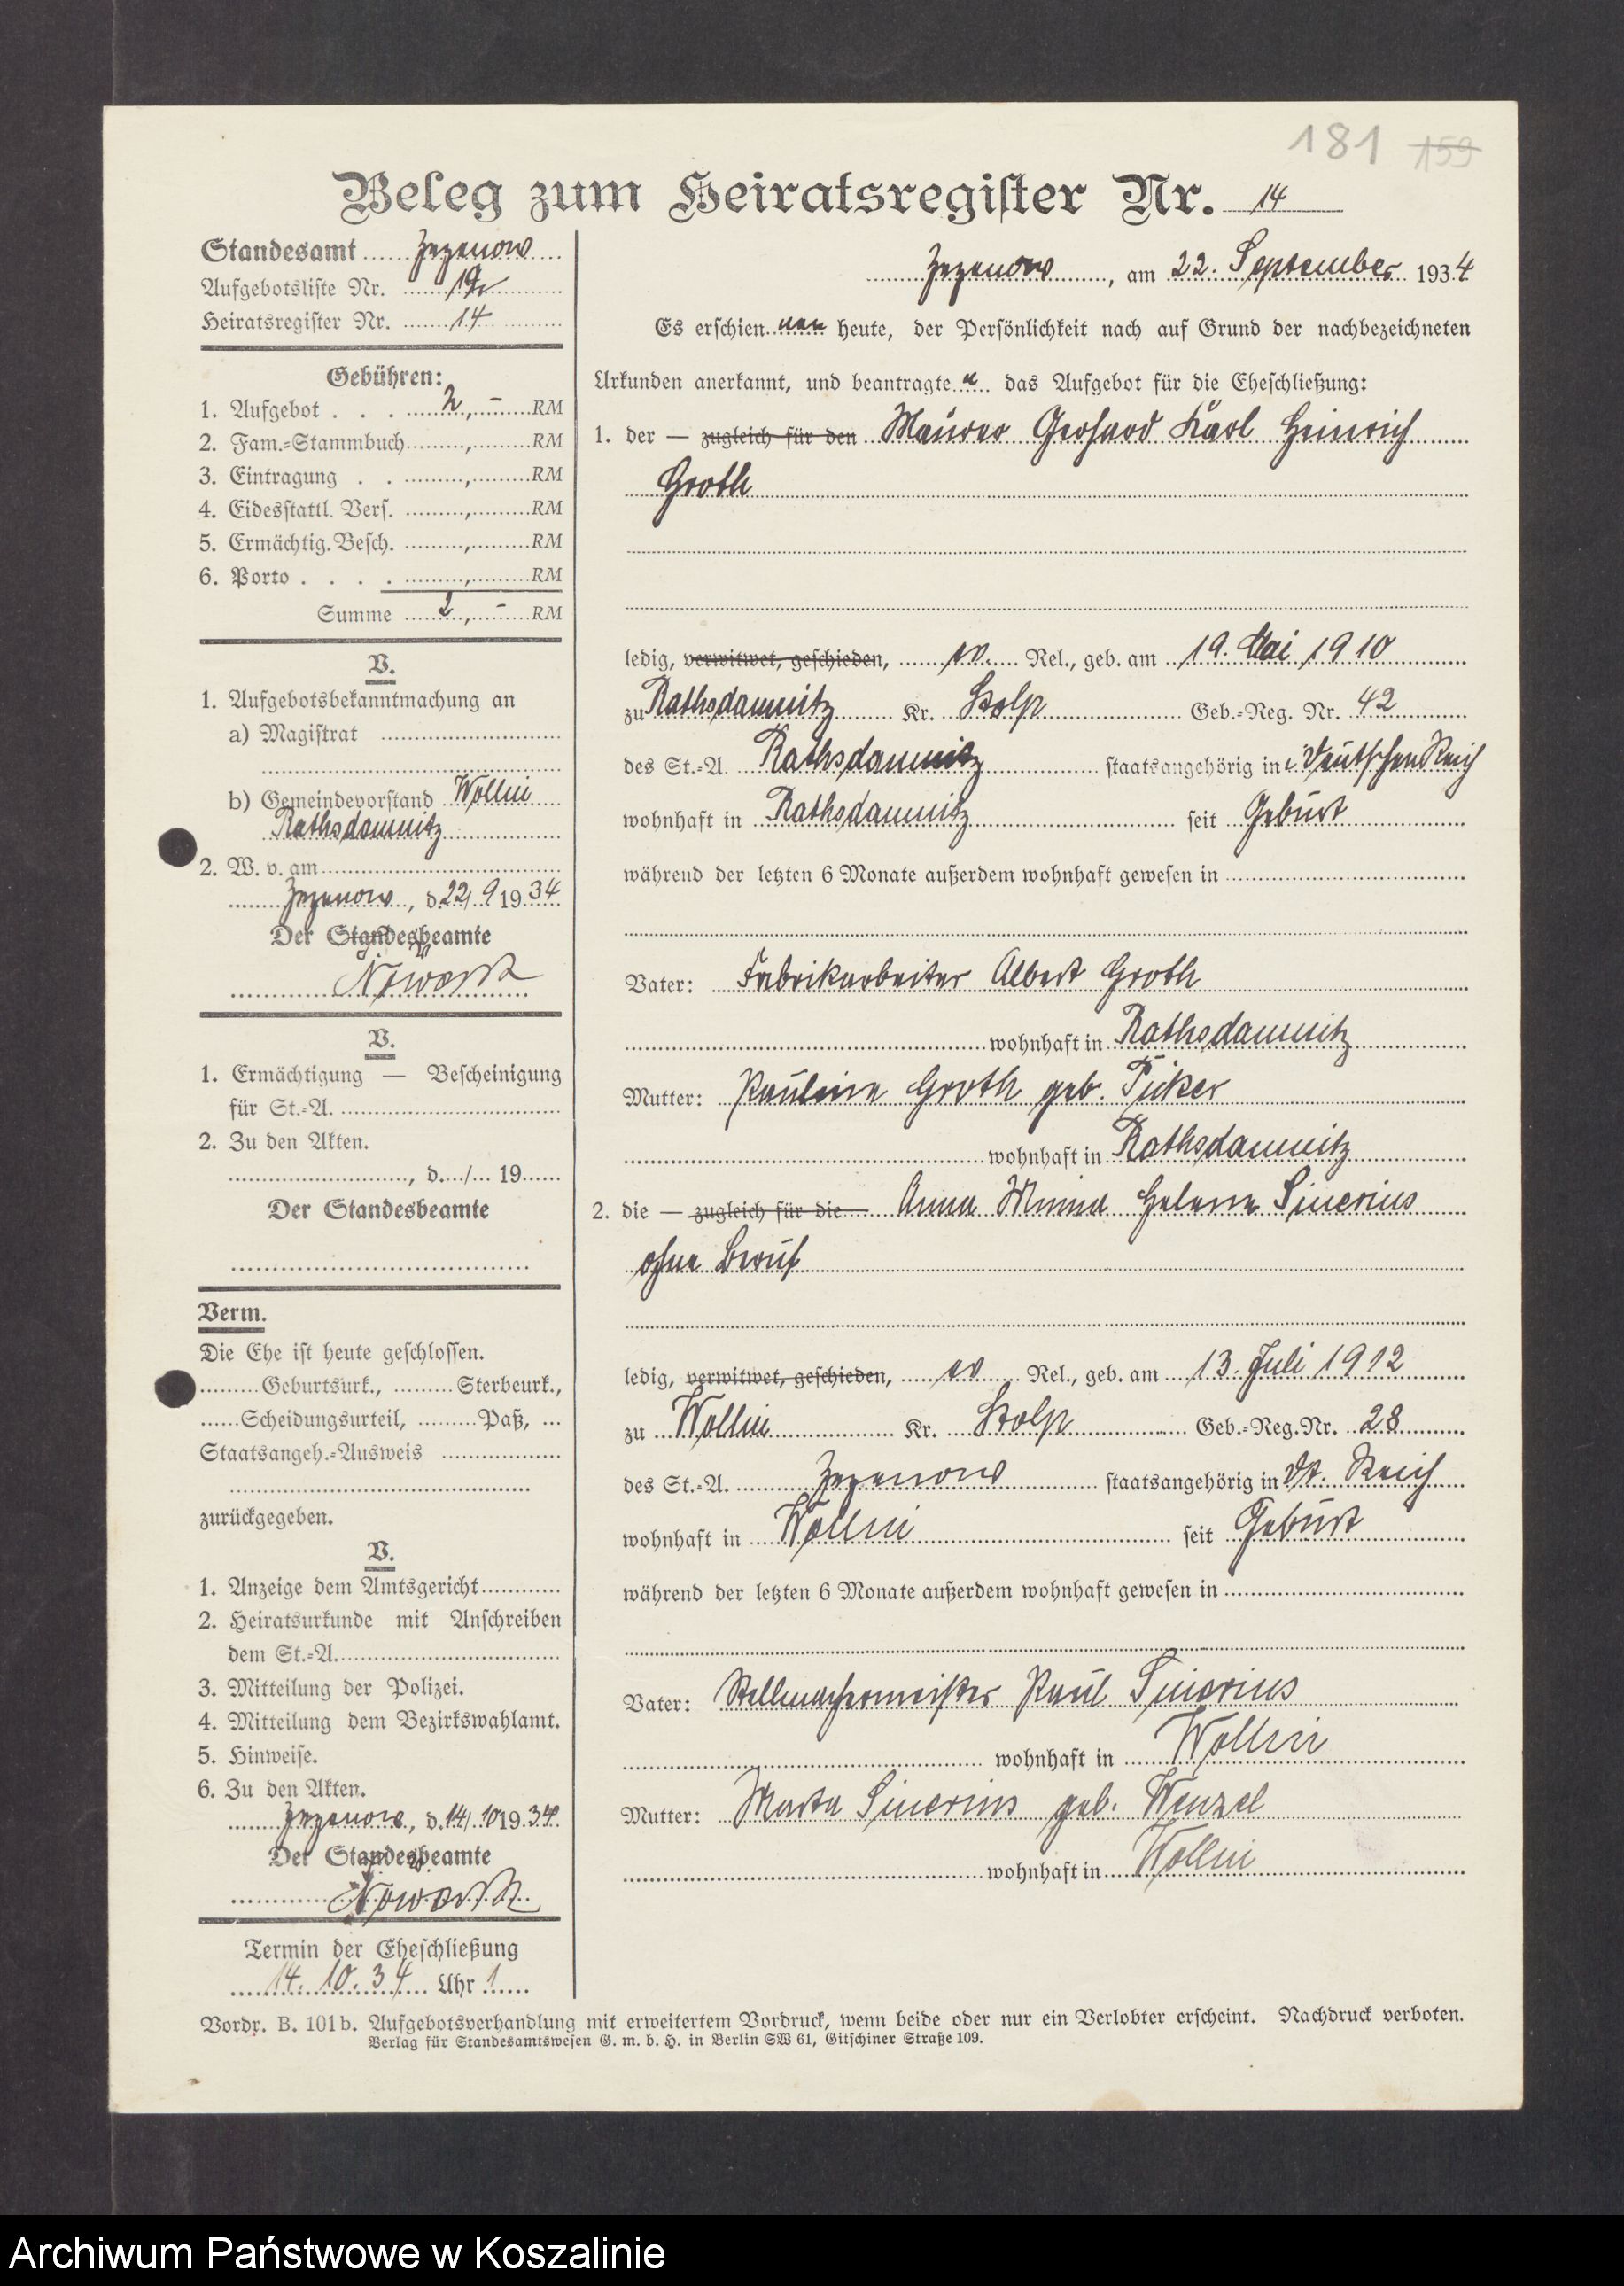 181 159
Beleg zum Heiratsregister Nr. 14
Standesamt Zezenow
Aufgebotsliste Nr.
Heiratsregister Nr. 14
Gebühren:
1. Aufgebot . . . 2,- RM
2. Fam.-Stammbuch , RM
3. Eintragung . . , RM
4. Eidesstattl. Vers. , RM
5. Ermächtig. Besch. , RM
6. Porto . . . . , RM
Summe 2,- RM
V.
1. Aufgebotsbekanntmachung an
a) Magistrat
b) Gemeindevorstand Wollin
Rathsdamnitz
2. W. v. am
Zezenow, d. 22/9 1934
Der Standesbeamte
V.
1. Ermächtigung — Bescheinigung
für St.-A.
2. Zu den Akten.
, d. / 19
Der Standesbeamte
Verm.
Die Ehe ist heute geschlossen.
Geburtsurk., Sterbeurk.,
Scheidungsurteil, Paß,
Staatsangeh.-Ausweis
zurückgegeben.
V.
1. Anzeige dem Amtsgericht
2. Heiratsurkunde mit Anschreiben
dem St.-A.
3. Mitteilung der Polizei.
4. Mitteilung dem Bezirkswahlamt.
5. Hinweise.
6. Zu den Akten.
Zezenow, d. 14/10 1934.
Der Standesbeamte
Termin der Eheschließung
14. 10. 34 Uhr 1
Zezenow, am 22. September 1934
Es erschienen heute, der Persönlichkeit nach auf Grund der nachbezeichneten
Urkunden anerkannt, und beantragten das Aufgebot für die Eheschließung:
1. der — zugleich für den Maurer Gerhard Karl Heinrich
Groth
ledig, verwitwet, geschieden, ev. Rel., geb. am 19. Mai 1910
zu Rathsdamnitz Kr. Stolp Geb.-Reg. Nr. 42
des St.-A. Rathsdamnitz staatsangehörig in Deutschen Reich
wohnhaft in Rathsdamnitz seit Geburt
während der letzten 6 Monate außerdem wohnhaft gewesen in
Vater: Fabrikarbeiter Albert Groth
wohnhaft in Rathsdamnitz
Mutter: Pauline Groth geb. Piker
wohnhaft in Rathsdamnitz
2. die — zugleich für die Anna Minna Helene Sincrius
ohne Beruf
ledig, verwitwet, geschieden, ev Rel., geb. am 13. Juli 1912
zu Wollin Kr. Stolp Geb.-Reg. Nr. 28
des St.-A. Zezenow staatsangehörig in Dt. Reich
wohnhaft in Wollin seit Geburt
während der letzten 6 Monate außerdem wohnhaft gewesen in
Vater: Stellmachermeister Paul Sincrius
wohnhaft in Wollin
Mutter: Marta Sincrius geb. Wenzel
wohnhaft in Wollin
Vordr. B. 101b. Aufgebotsverhandlung mit erweitertem Vordruck, wenn beide oder nur ein Verlobter erscheint. Nachdruck verboten.
Verlag für Standesamtswesen G. m. b. H. in Berlin SW 61, Gitschiner Straße 109.
Archiwum Państwowe w Koszalinie